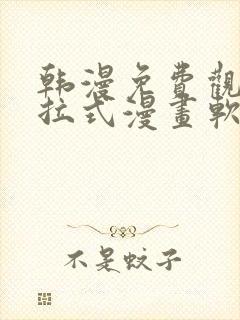 韩漫免費觀
拉式漫畫軟
不是蚊子